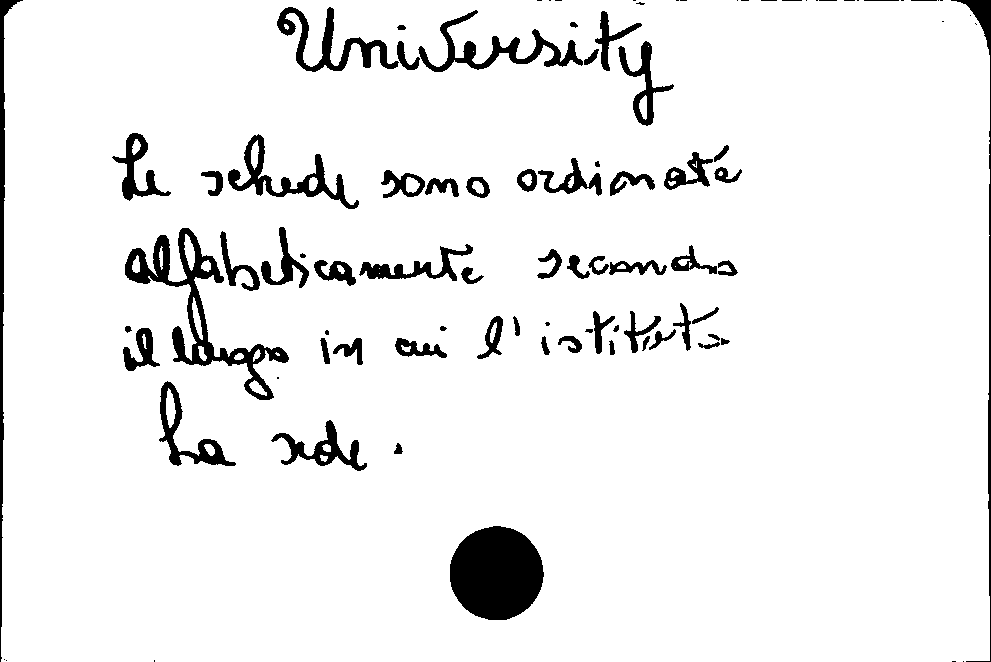 University
Le schede sono ordinate
alfabeticamente secondo
il luogo in cui l'istituto
ha sede.